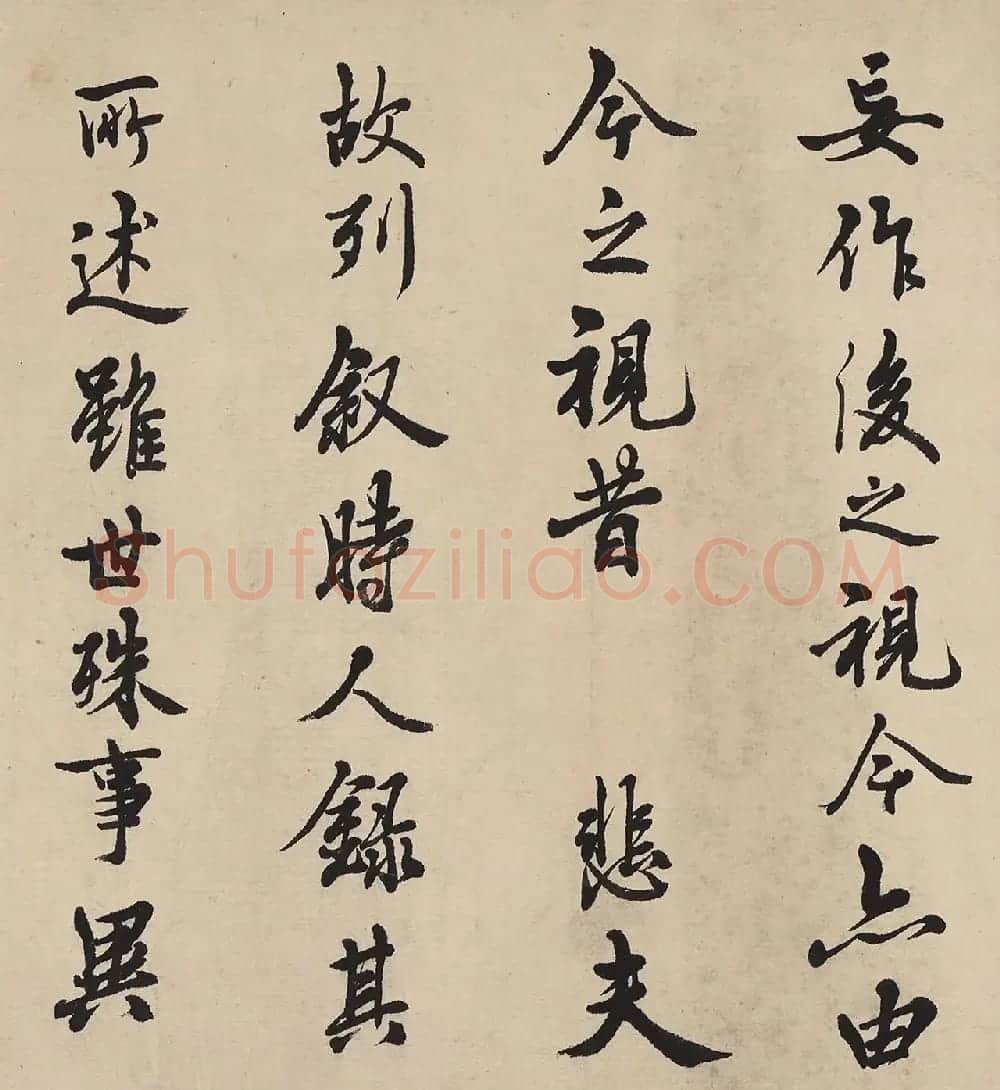 妄作後之視今亦由
今之視昔 悲夫
故列叙時人録其
所述雖世殊事異
Shufaziliao.COM